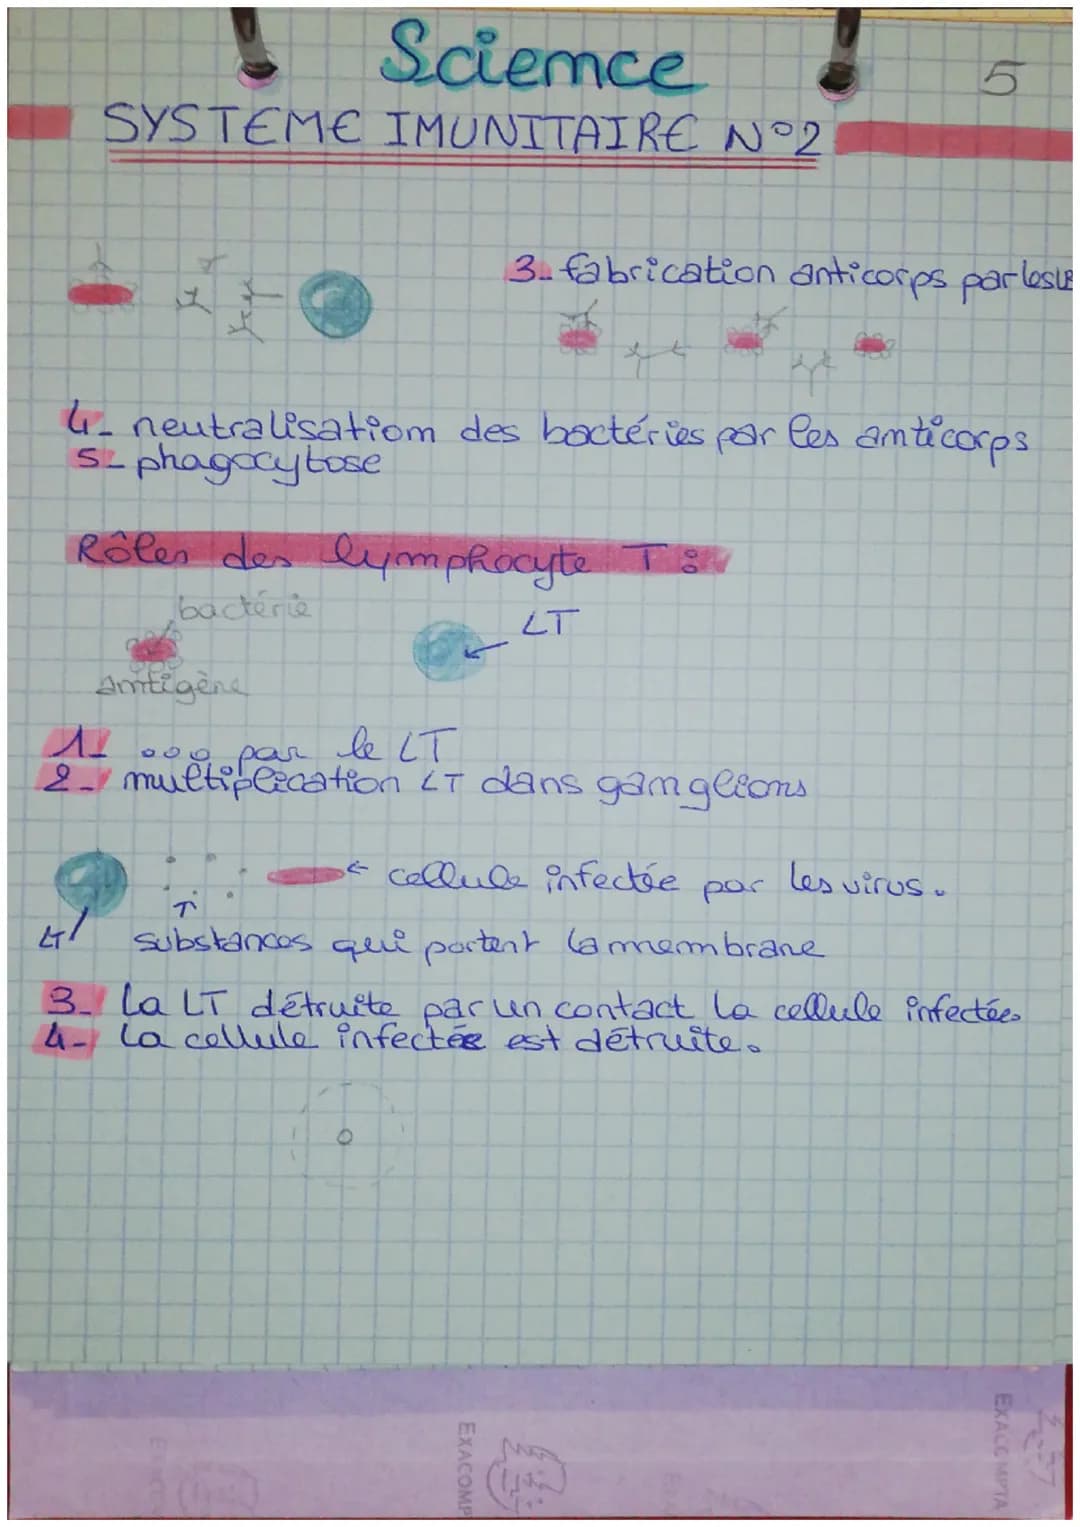 Science
5
SYSTEME IMUNITAIRE N°2
3- fabrication anticorps par les LB
4- neutralisation des bactéries par les anticorps
5- phagocytose
Rôles des lymphocyte T :
bactérie
LT
antigène
1- ... par le LT
2- multiplication LT dans ganglions
← cellule infectée par les virus.
LT
substances qui portent la membrane
3- la LT détruite par un contact la cellule infectée.
4- la cellule infectée est détruite.
EXACOMP
EXACOMPTA